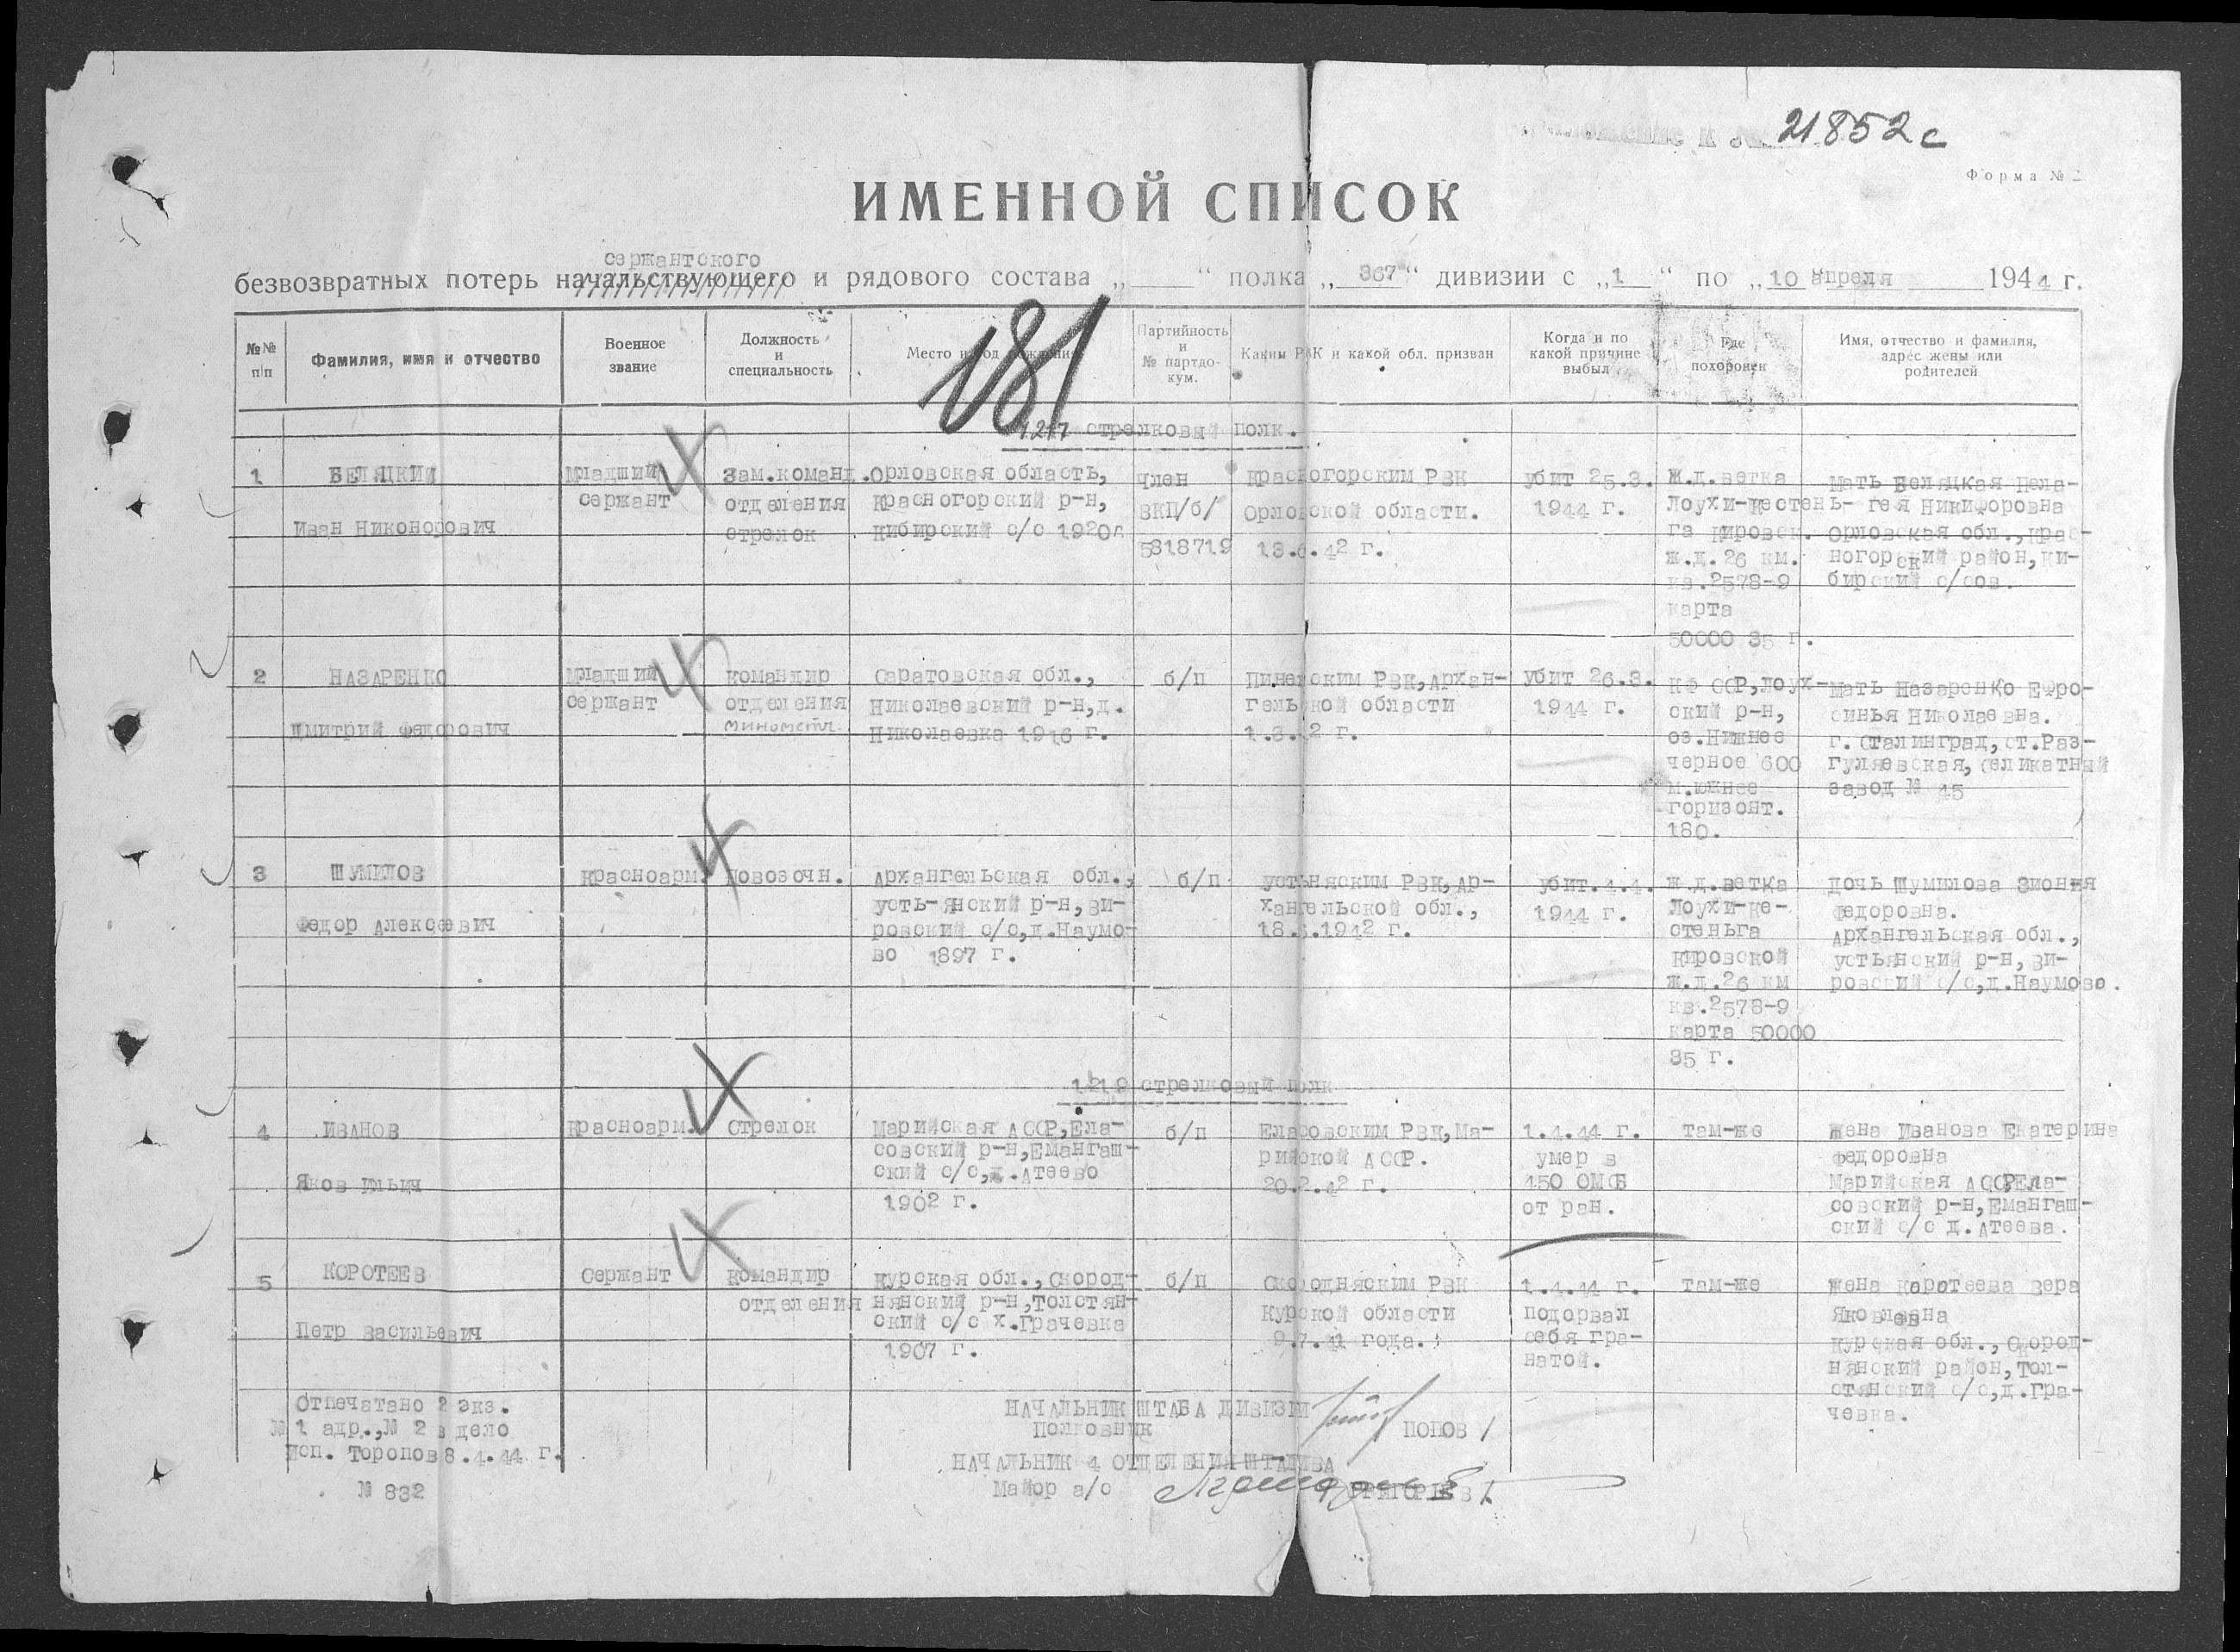 21852с
Форма №
ИМЕННОЙ СПИСОК
сержантского
безвозвратных потерь начальствующего и рядового состава „ “ полка „367“ дивизии с „1 “ по „10 апреля 1944 г.
№№ п/п
Фамилия, имя и отчество
Военное звание
Должность и специальность
Место и год рождения
Партийность и № партдокум.
Каким РВК и какой обл. призван
Когда и по какой причине выбыл
Где похоронен
Имя, отчество и фамилия, адрес жены или родителей
181
1217 стрелковый полк.
1
БЕЛЯЦКИЙ
Иван Никонорович
Младший
сержант
Зам.команд.
отделения
стрелок
Орловская область,
Красногорский р-н,
Кибирский с/с 1920г
Член
ВКП/б/
5818719
Красногорским РВК
Орловской области.
42 г.
убит 25.3.
1944 г.
Ж.д.ветка
Лоухи-Кестень-
га Кировск.
ж.д.26 км.
кв.2578-9
карта
50000 35 г.
Мать Беляцкая Пела-
гея Никифоровна
Орловская обл.,Крас-
ногорский район,Ки-
бирский с/сов.
2
НАЗАРЕНКО
Дмитрий Федорович
Младший
сержант
командир
отделения
минометч.
Саратовская обл.,
Николаевский р-н,д.
Николаевка 1916 г.
б/п
Пинежским РВК,Архан-
гельской области
убит 26.3.
1944 г.
КФ ССР,Лоух-
ский р-н,
оз.Нижнее
черное 600
м.южнее
горизонт.
180.
Мать Назаренко Ефро-
синья Николаевна.
г.Сталинград,ст.Раз-
гуляевская,Селикатный
завод № 45
3
ШУМИЛОВ
Федор Алексеевич
Красноарм.
Повозочн.
Архангельская обл.,
усть-янский р-н,Зи-
ровский с/с,д.Наумо-
во 1897 г.
б/п
устьняским РВК,Ар-
хангельской обл.,
убит.4.4.
1944 г.
Ж.д.ветка
Лоухи-Ке-
стеньга
Кировской
ж.д.26 км
кв.2578-9
карта 50000
35 г.
Дочь Шумилова Зиония
Федоровна.
Архангельская обл.,
устьянский р-н,Зи-
ровский с/с,д.Наумово.
1219 стрелковый полк
4
ИВАНОВ
Яков Ильич
Красноарм.
Стрелок
Марийская АССР,Ела-
совский р-н,Емангаш-
ский с/с,д.Атеево
1902 г.
б/п
Еласовским РВК,Ма-
рийской АССР.
20.2.42 г.
1.4.44 г.
умер в
450 ОМСБ
от ран.
там-же
жена Иванова Екатерина
Федоровна
Марийская АССР,Ела-
совский р-н,Емангаш-
ский с/с д.Атеева.
5
КОРОТЕЕВ
Петр Васильевич
Сержант
командир
отделения
Курская обл.,Скород-
нянский р-н,Толстян-
ский с/с х.Грачевка
1907 г.
б/п
Скородняским РВК
Курской области
9.7.41 года.
1.4.44 г.
подорвал
себя гра-
натой.
там-же
жена Коротеева Вера
Яковлевна
Курская обл.,Скород-
нянский район,Тол-
стянский с/с,д.Гра-
чевка.
Отпечатано 2 экз.
№ 1 адр.,№ 2 в дело
Исп. Торопов 8.4.44 г.
№ 832
НАЧАЛЬНИК ШТАБА ДИВИЗИИ
Полковник
ПОПОВ /
НАЧАЛЬНИК 4 ОТДЕЛЕНИЯ ШТАДИВА
Майор а/с
ГРИГОРЬЕВ /